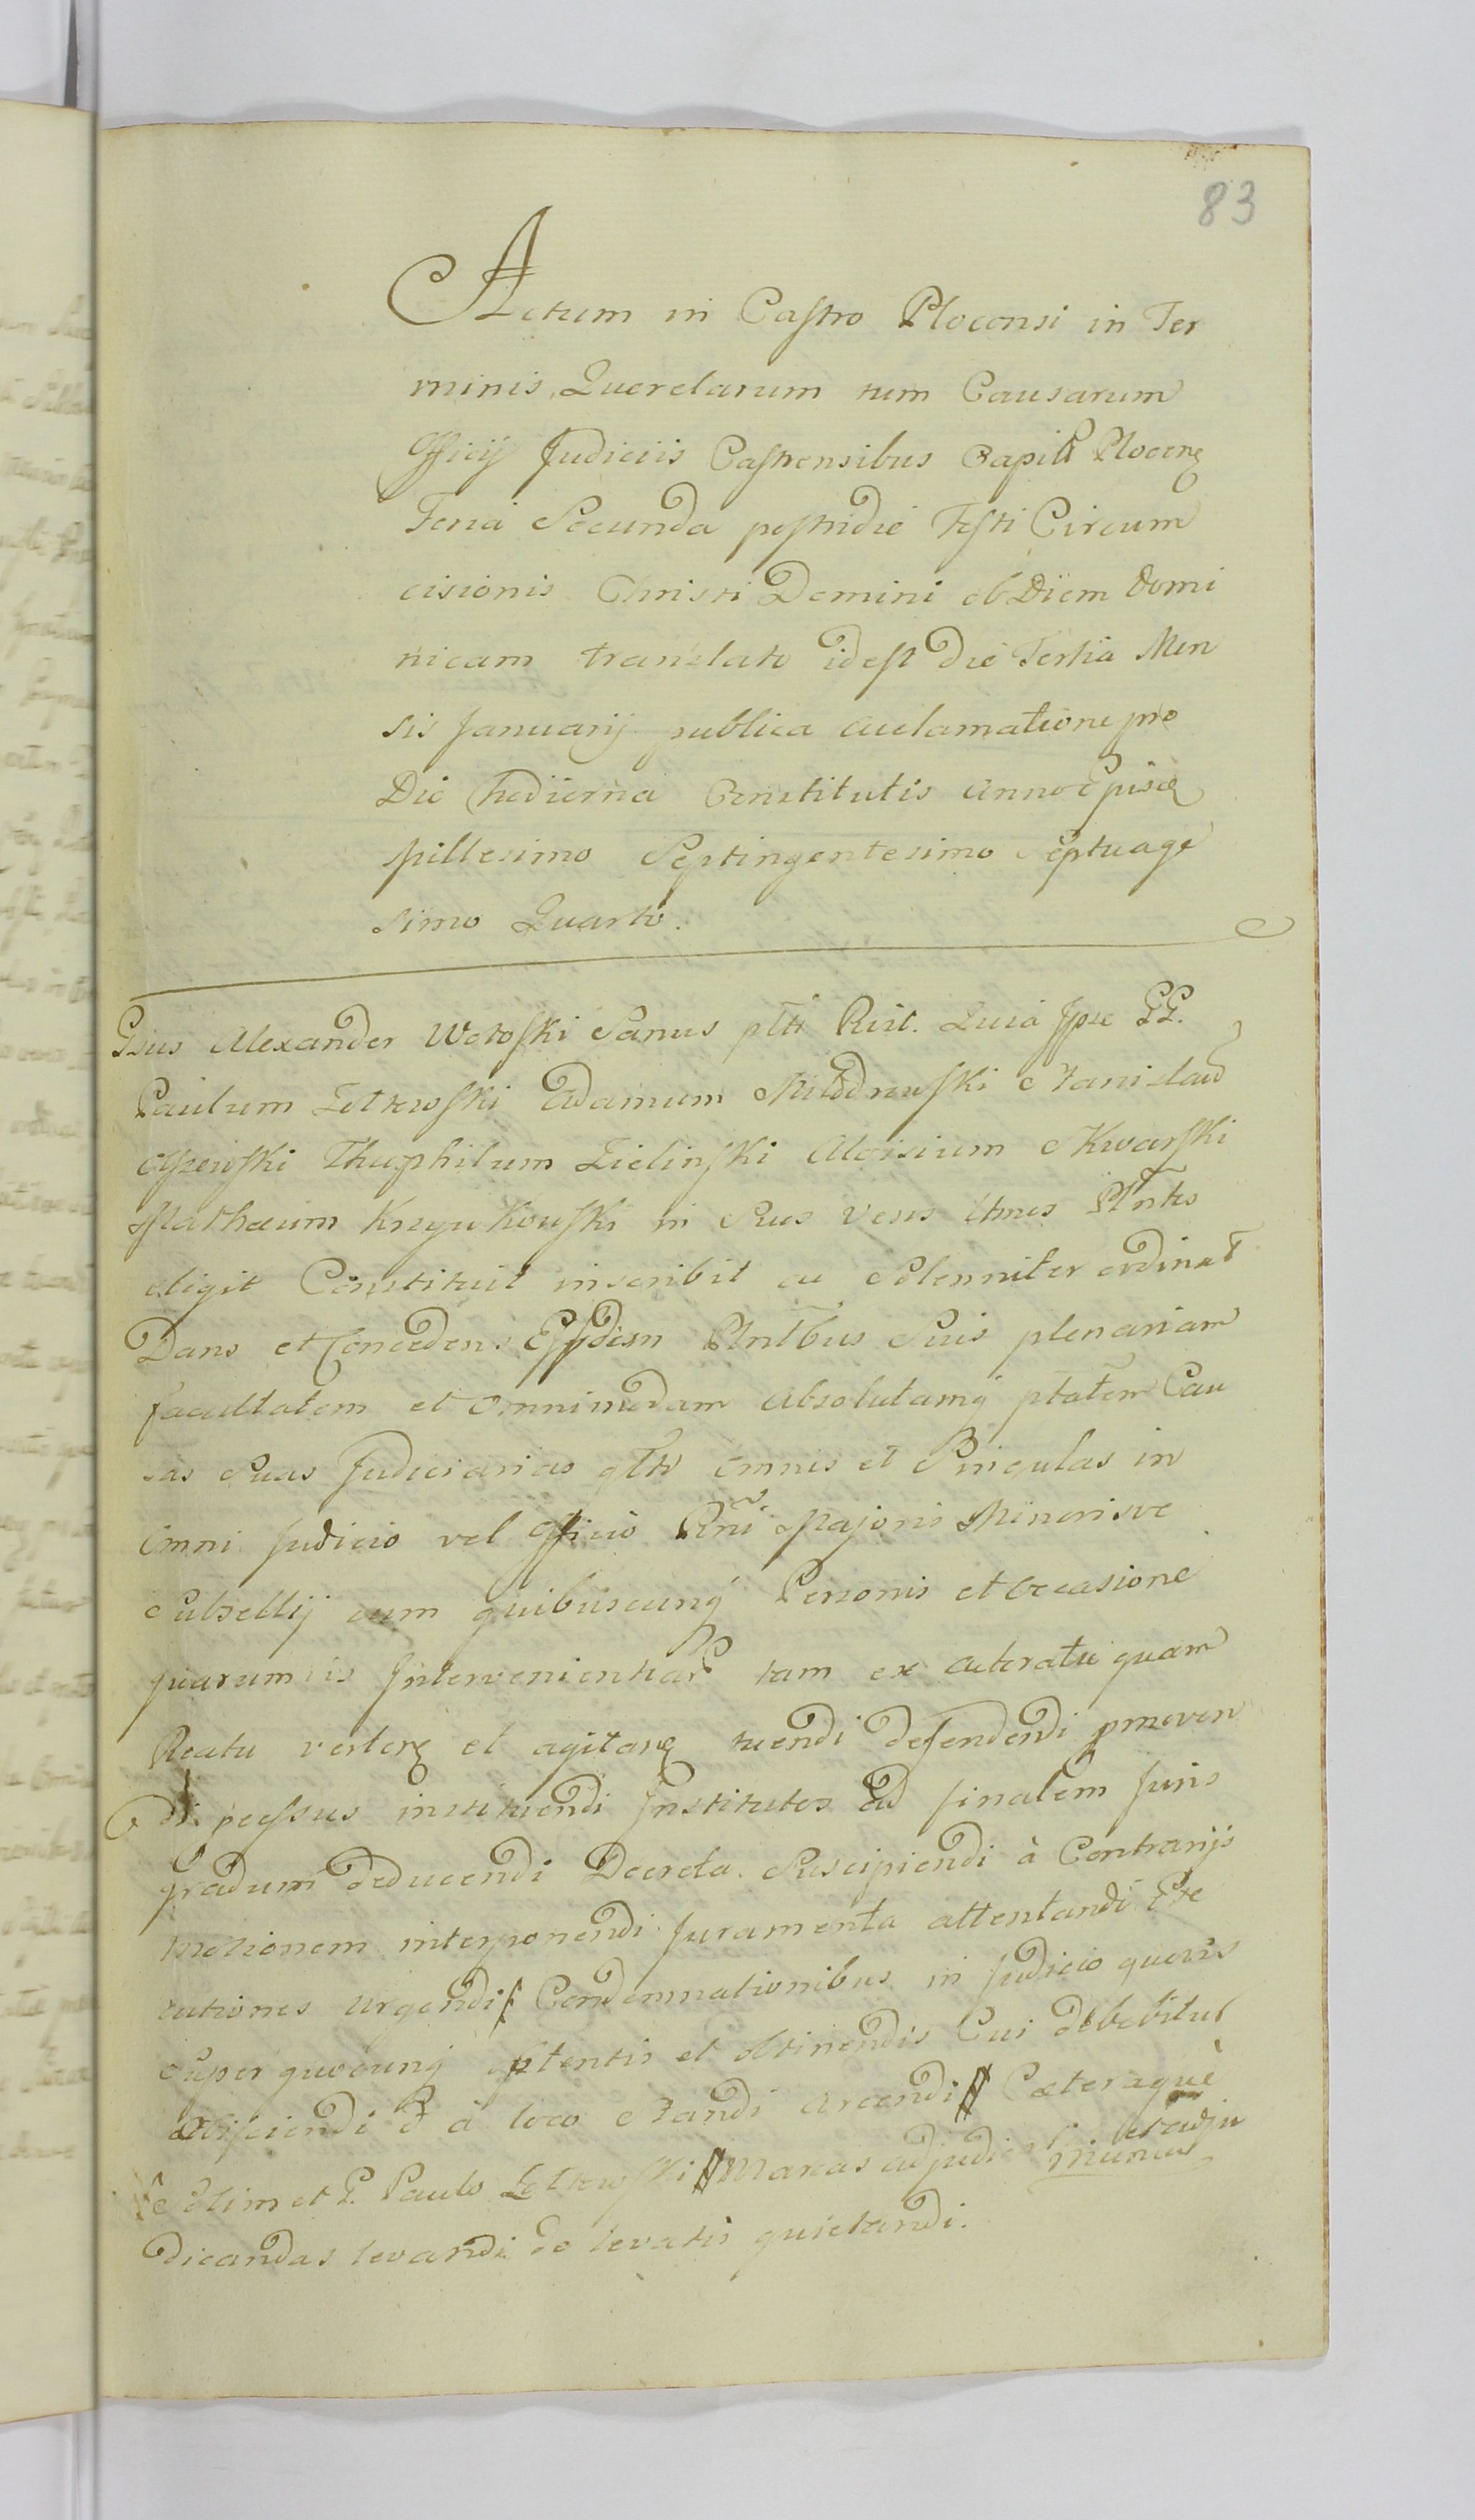 83
Actum in Castro Plocensi in Ter
minis Querelarum tum Causarum
Officij Judiciis Castrensibus Capit Plocens
Feria Secunda postridie Festi Circum
cisionis Christi Domini ob Diem Domi
nicam translato idest Die Tertia Men
sis Januarij publica acclamatione pro
Die hodierna Constitutis Anno Ejusd
Millesimo Septingentesimo Septuage
simo Quarto.
Gsus Alexander Wotoski Sanus Quia Ipse GG.
Paulum Adamum Stanislaum
Theophilum Zielinski Aloisium Skwarski
Mathæum in Suos Veros
eligit Constituit inscribit ac Solenniter ordinat
Dans et Concedens Suis plenariam
facultatem et omnimodam Absolutamq ptatem Cau
sas Suas Judiciarias omnes et Singulas in
Omni Judicio vel Officio Majoris Minorisve
Subsellij cum quibuscunq Personis et Occasione
quarumvis Intervenientiar tam ex actoratu quam
Reatu verten et agitan tuendi defendendi promoven
di instituendi Institutos ad finalem Juris
Gradum deducendi Decreta Suscipiendi à Contrarijs
Motionem interponendi Juramenta attentandi Exe
cutiones urgendi Condemnationibus in Judicio quovis
Super quocunq obtentis et obtinendis Cui debebitur
à loco Standi Arcendi Cæteraquè
et G. Paulo Marcas adjudicat
et adju
dicandas levandi de levatis quietandi.